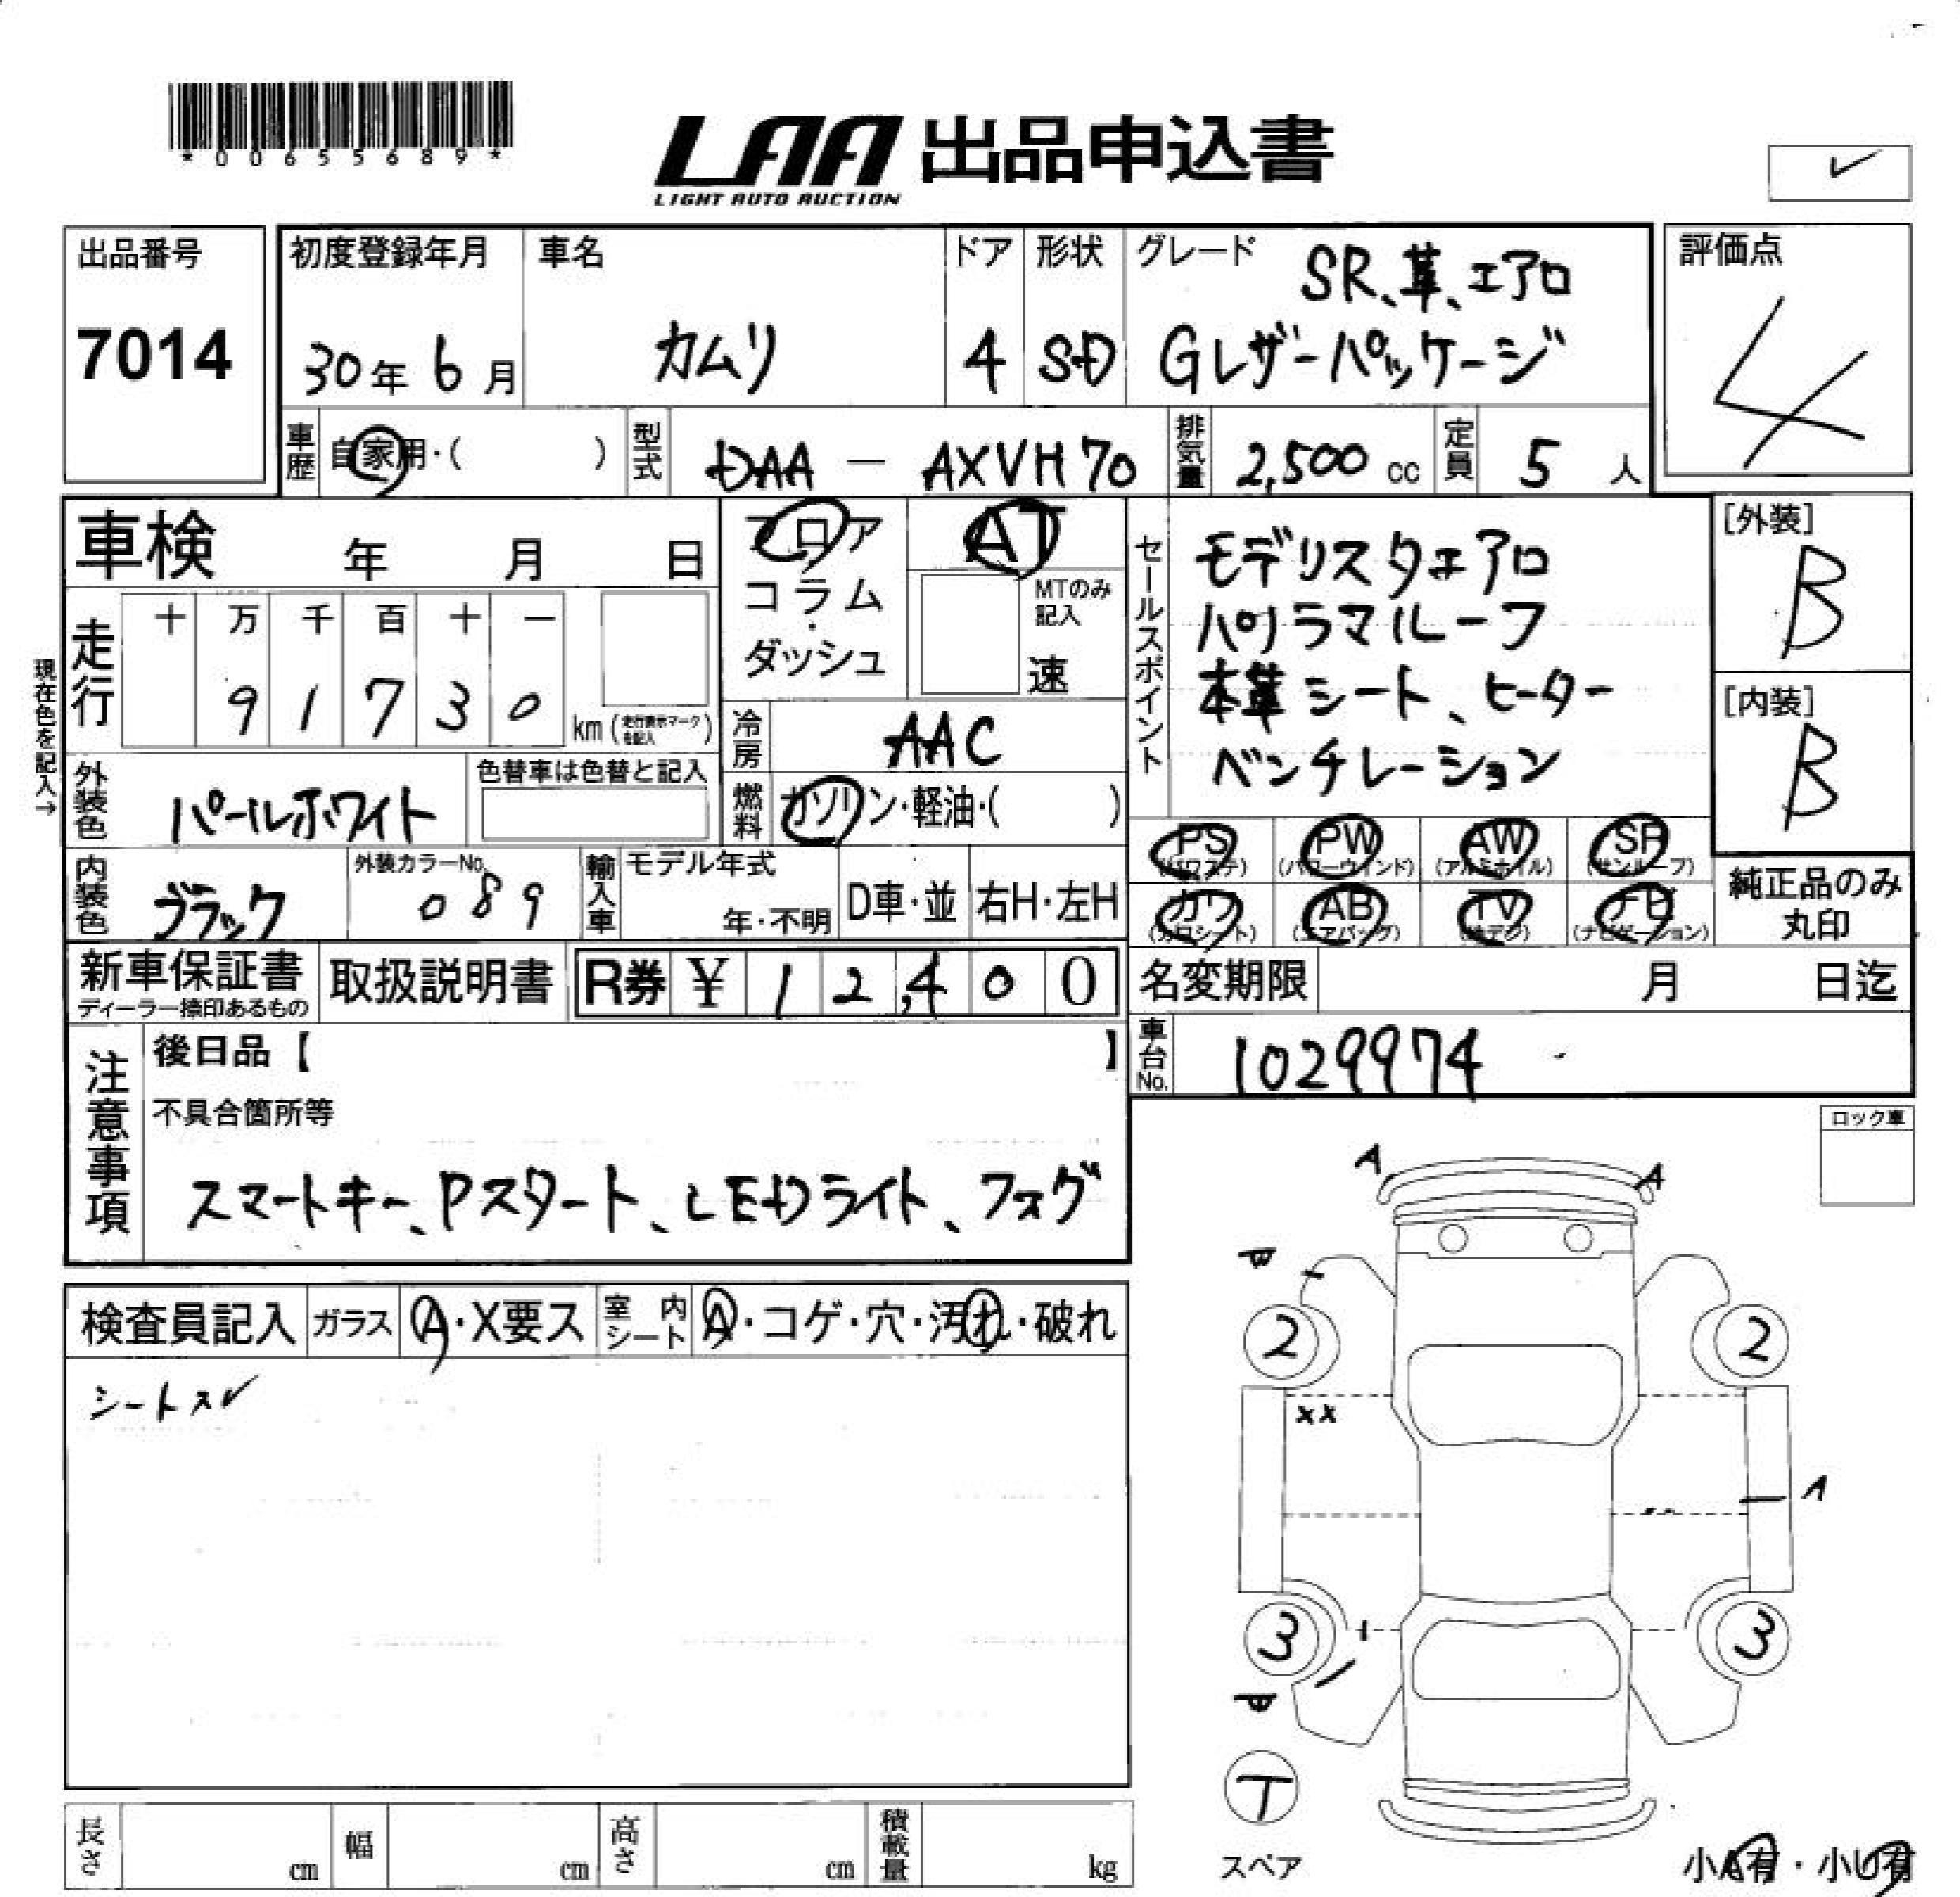 *00655689*
LAA 出品申込書
LIGHT AUTO AUCTION
✓
出品番号
7014
初度登録年月
30年 6月
車名
カムリ
ドア
4
形状
SD
グレード
SR、革、エアロ
Gレザーパッケージ
評価点
4
車歴 自家用・( )
型式 DAA - AXVH70
排気量 2,500 cc
定員 5 人
車検 年 月 日
フロア
コラム
・
ダッシュ
AT
MTのみ
記入
速
セールスポイント
モデリスタエアロ
パノラマルーフ
本革シート、ヒーター
ベンチレーション
[外装]
B
[内装]
B
現在色を記入→
走行
十 万 千 百 十 一
9 1 7 3 0
km (走行表示マークを記入)
冷房 AAC
外装色 パールホワイト
色替車は色替と記入
燃料 ガソリン・軽油・( )
PS PW AW SR
(パワステ) (パワーウィンド) (アルミホイル) (サンルーフ)
カワ AB TV ナビ
(カワシート) (エアバッグ) (地デジ) (ナビゲーション)
純正品のみ
丸印
内装色 ブラック
外装カラーNo.
089
輸入車
モデル年式
年・不明
D車・並
右H・左H
新車保証書
ディーラー捺印あるもの
取扱説明書
R券 ¥ 1 2,4 0 0
名変期限 月 日迄
車台No. 1029974
注意事項
後日品【 】
不具合箇所等
スマートキー、Pスタート、LEDライト、フォグ
ロック車
検査員記入
ガラス A・X要ス
室内シート A・コゲ・穴・汚れ・破れ
シートスレ
A A
2 2
XX
A
3 3
T
スペア
小A有・小U有
長さ cm
幅 cm
高さ cm
積載量 kg